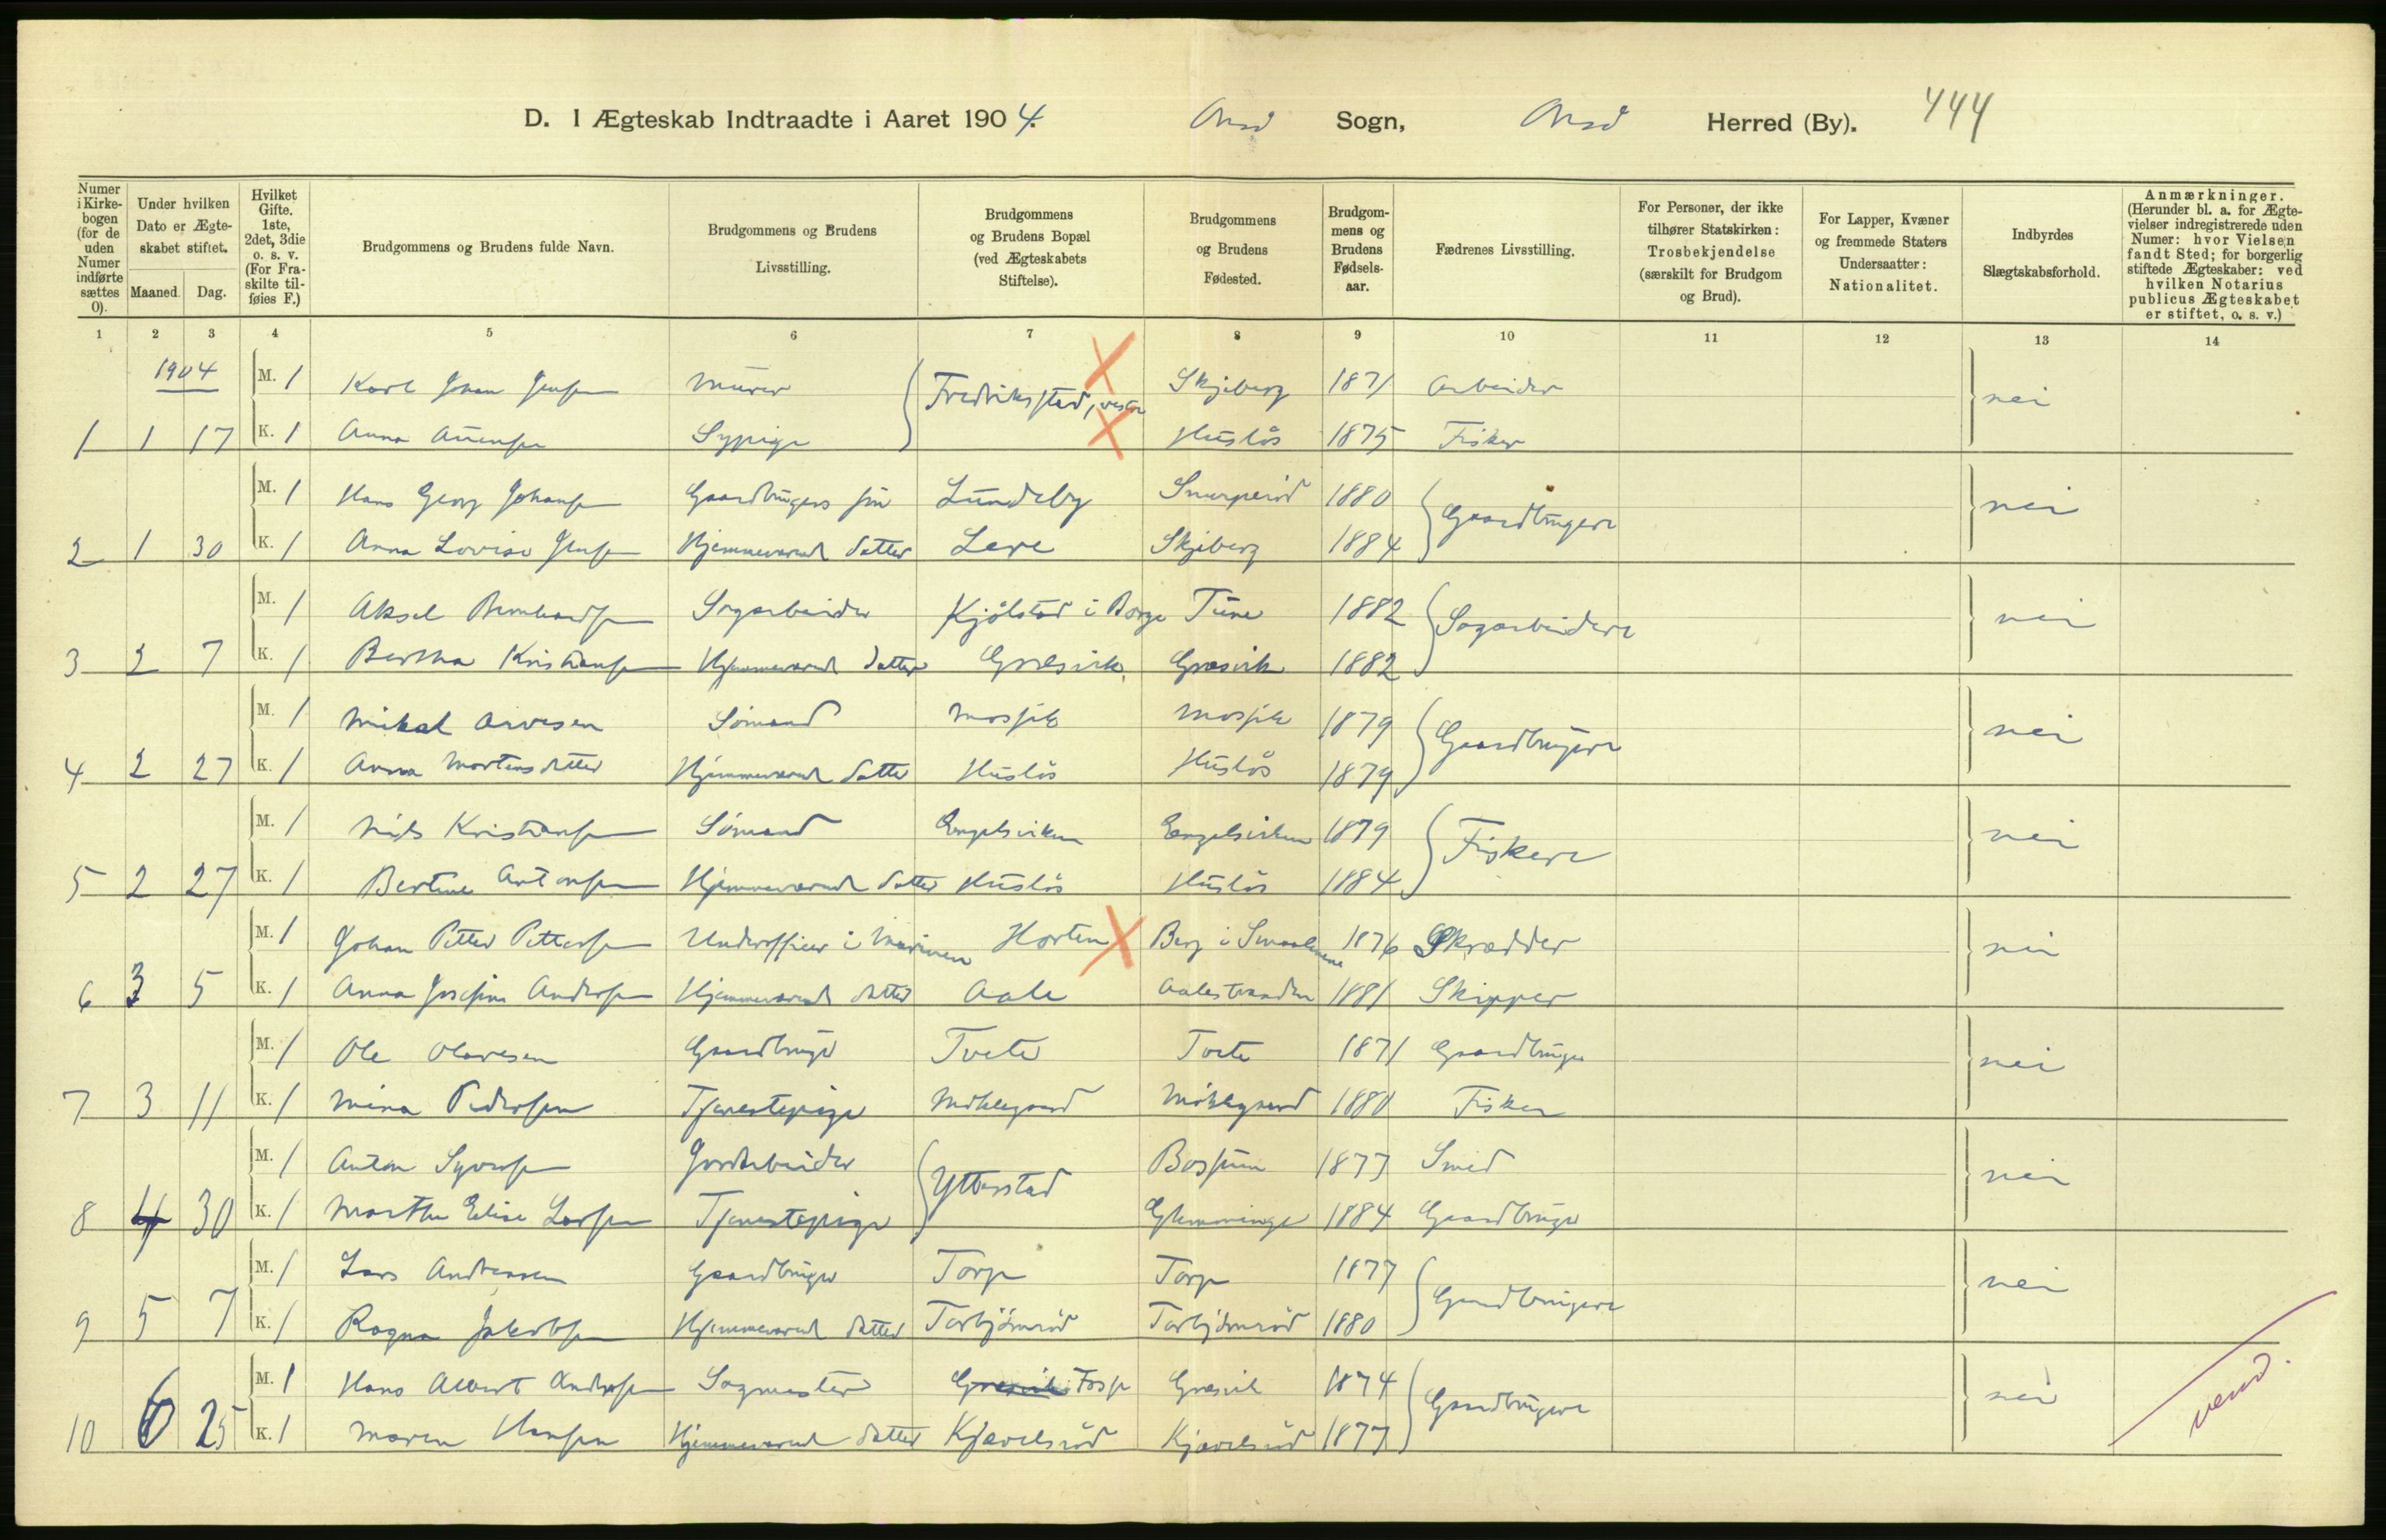 D. I Ægteskab Indtraadte i Aaret 1904. Onsø Sogn, Onsø Herred (By). 444
Numer i Kirkebogen (for de uden Numer indførte sættes 0).
Under hvilken Dato er Ægteskabet stiftet.
Maaned. Dag.
Hvilket Gifte. 1ste, 2det, 3die o. s. v. (For Fraskilte tilføies F.)
Brudgommens og Brudens fulde Navn.
Brudgommens og Brudens Livsstilling.
Brudgommens og Brudens Bopæl (ved Ægteskabets Stiftelse).
Brudgommens og Brudens Fødested.
Brudgommens og Brudens Fødselsaar.
Fædrenes Livsstilling.
For Personer, der ikke tilhører Statskirken: Trosbekjendelse (særskilt for Brudgom og Brud).
For Lapper, Kvæner og fremmede Staters Undersaatter: Nationalitet.
Indbyrdes Slægtskabsforhold.
Anmærkninger. (Herunder bl. a. for Ægtevielser indregistrerede uden Numer: hvor Vielsen fandt Sted; for borgerlig stiftede Ægteskaber: ved hvilken Notarius publicus Ægteskabet er stiftet, o. s. v.)
1 2 3 4 5 6 7 8 9 10 11 12 13 14
1904 M. 1 Karl Johan Jensen Murer Fredriksstad, vestre Skjeberg 1871 Arbeider nei
1 1 17 K. 1 Anna Aunsen Sypige Huslös 1875 Fisker
M. 1 Hans Georg Johansen Gaardbrugers sön Lundeby Snurperöd 1880 Gaardbrugere nei
2 1 30 K. 1 Anna Lovise Jensen Hjemmeværende datter Lere Skjeberg 1884
M. 1 Aksel Bernhardsen Sagarbeider Kjölstad i Borge Tune 1882 Sagarbeidere nei
3 2 7 K. 1 Bertha Kristiansen Hjemmeværende datter Gresvik Gresvik 1882
M. 1 Mikal Arvesen Sömand Mossik Mossik 1879 Gaardbrugere nei
4 2 27 K. 1 Anna Mortensdatter Hjemmeværende datter Huslös Huslös 1879
M. 1 Nils Kristiansen Sömand Engelsviken Engelsviken 1879 Fiskere nei
5 2 27 K. 1 Bertine Antonsen Hjemmeværende datter Huslös Huslös 1884
M. 1 Johan Petter Pettersen Underofficer i Marinen Horten Berg i Smaalenene 1876 Skrædder nei
6 3 5 K. 1 Anna Josefine Andersen Hjemmeværende datter Aale Aalestranden 1881 Skipper
M. 1 Ole Olavesen Gaardbruger Tvete Tvete 1871 Gaardbruger nei
7 3 11 K. 1 Mina Pedersen Tjenestepige Möklegaard Möklegaard 1880 Fisker
M. 1 Anton Syversen Jordarbeider Ytterstad Bossum 1877 Smed nei
8 4 30 K. 1 Marthe Elise Larsen Tjenestepige Glemminge 1884 Gaardbruger
M. 1 Lars Andreasen Gaardbruger Torp Torp 1877 Gaardbrugere nei
9 5 7 K. 1 Ragna Jakobsen Hjemmeværende datter Torbjörnröd Torbjörnröd 1880
M. 1 Hans Albert Andersen Sagmester Gresvik Torp Gresvik 1874 Gaardbrugere nei
10 6 25 K. 1 Maren Hansen Hjemmeværende datter Kjævelsröd Kjævelsröd 1877
vend.